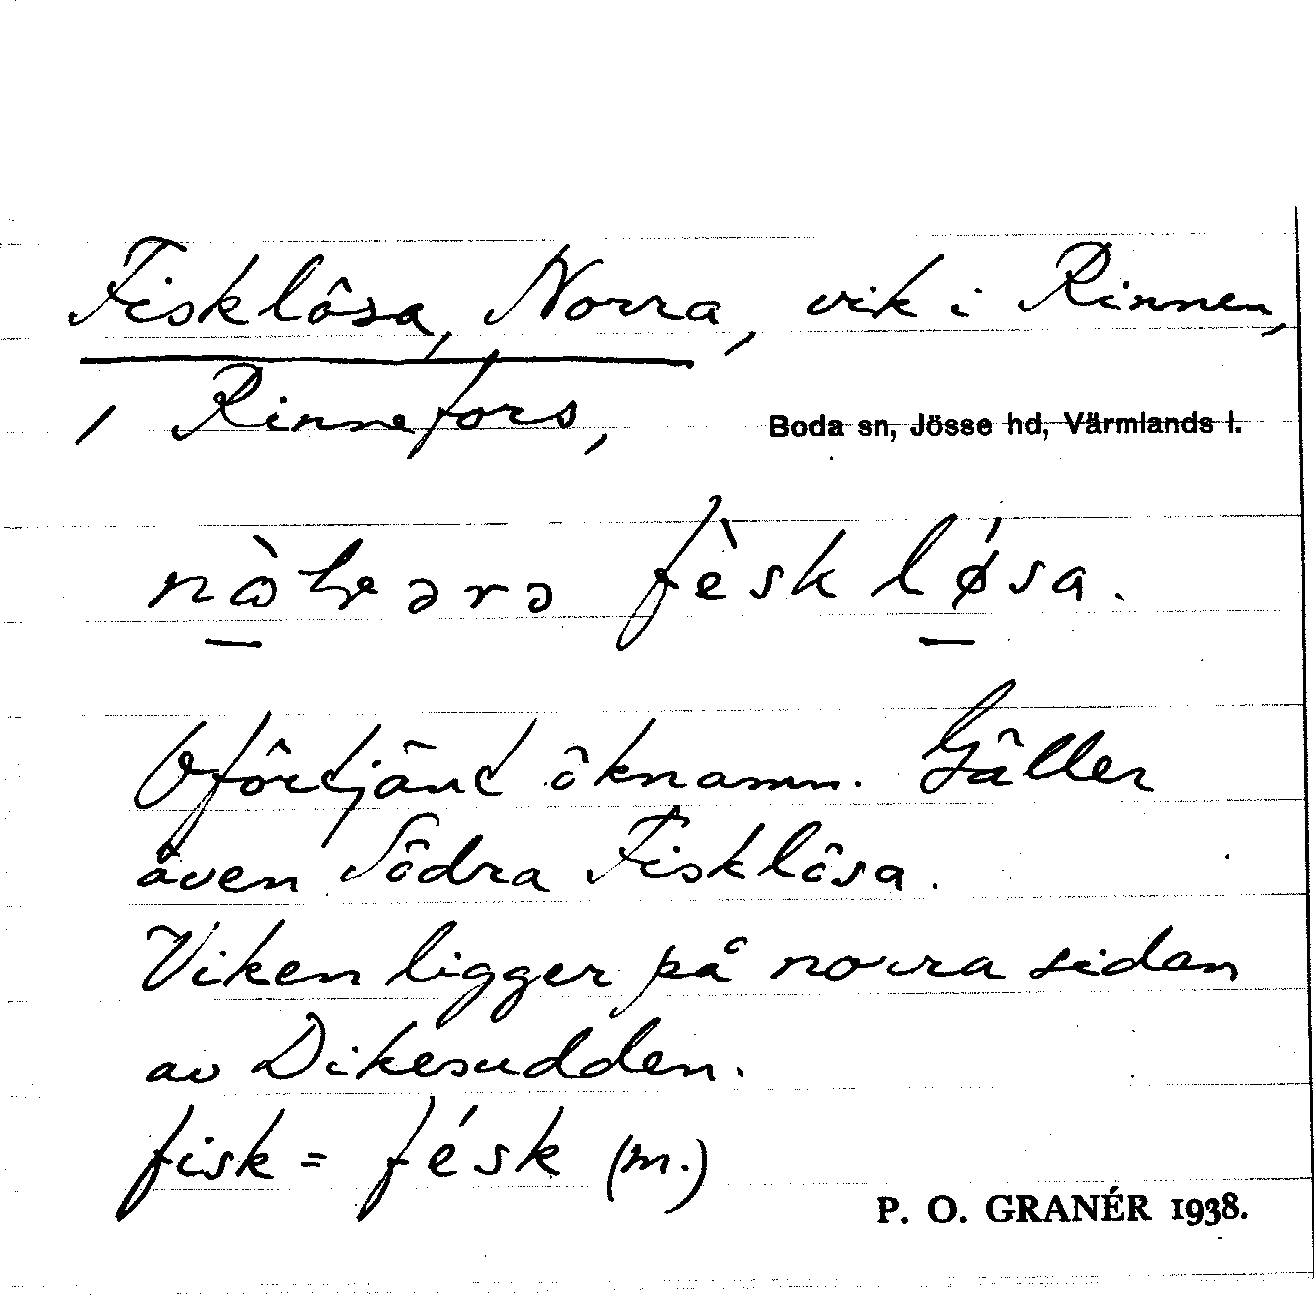 Fisklösa, Norra, vik i Rinnen,
i Rinnefors, Boda sn, Jösse hd, Värmlands l.
fèskløsa.
Oförtjänt öknamn. Gäller
även Södra Fisklösa.
Viken ligger på norra sidan
av Dikesudden.
fisk = fésk (m.)
P. O. GRANÉR 1938.